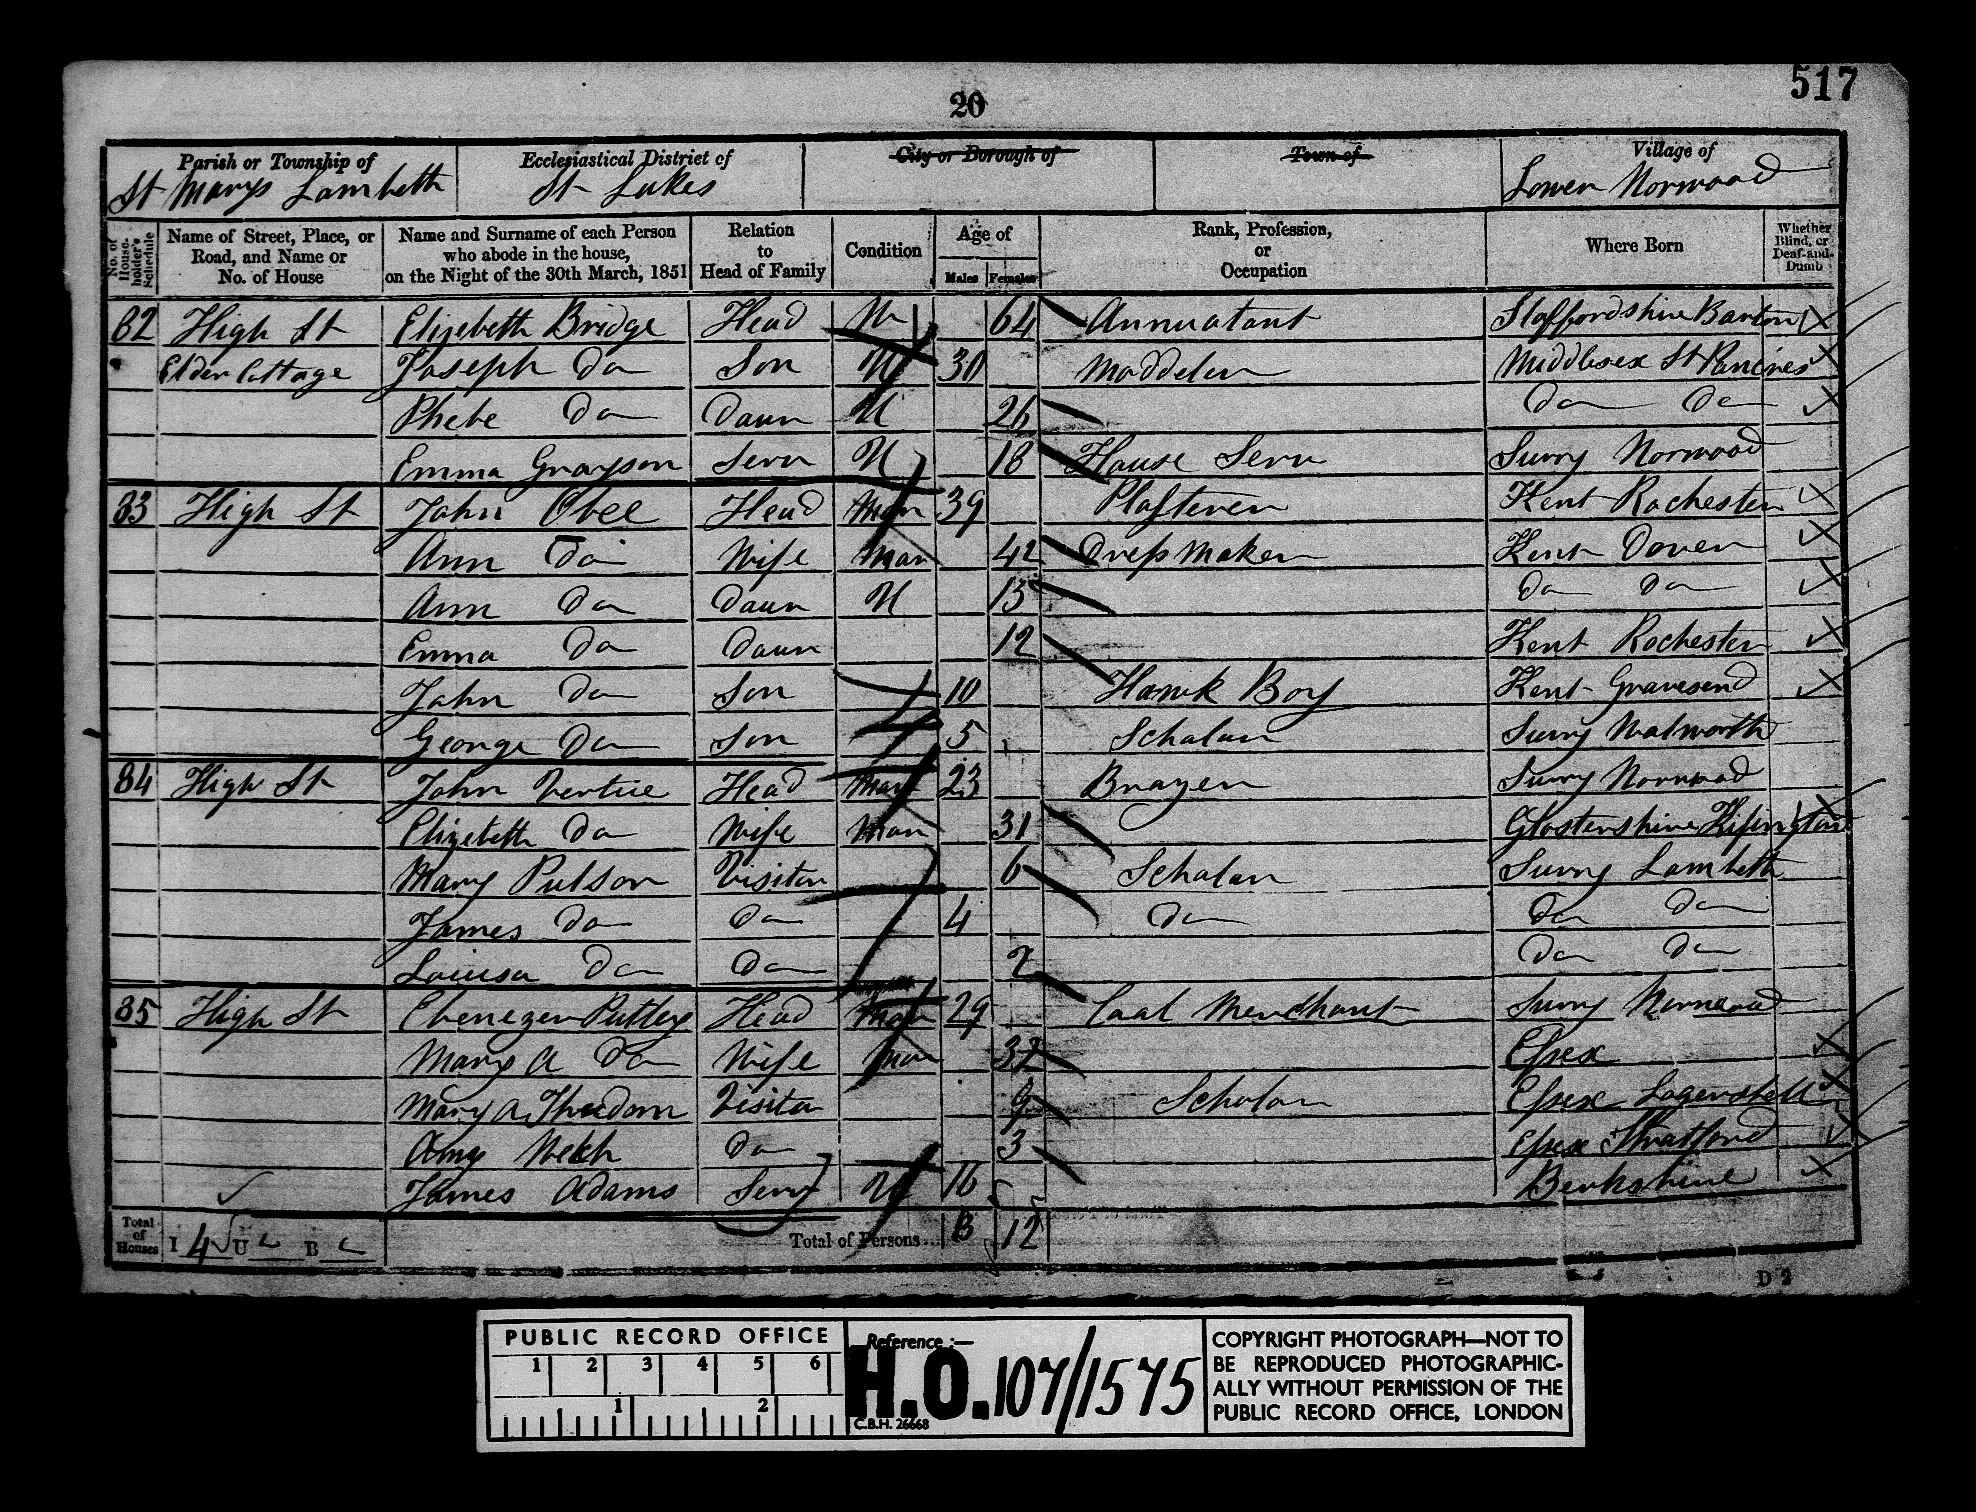 517
20
Parish or Township of Ecclesiastical District of City or Borough of Town of Village of
St Marys Lambeth St Lukes Lower Norwood
No. of House-holder's Schedule Name of Street, Place, or Road, and Name or No. of House Name and Surname of each Person who abode in the house, on the Night of the 30th March, 1851 Relation to Head of Family Condition Age of Males Females Rank, Profession, or Occupation Where Born Whether Blind, or Deaf-and-Dumb
82 High St Elizebeth Bridge Head 64 Annuatant Staffordshire Barton
Elder Cottage Joseph Do Son U 30 Moddeler Middlesex St Pancres
Phebe Do Daur U 26 Do Do
Emma Grayson Serv U 18 House Serv Surry Norwood
83 High St John Obee Head Mar 39 Plasterer Kent Rochester
Ann Do Wife Mar 42 Dress Maker Kent Dover
Ann Do Daur U 13 Do Do
Emma Do Daur 12 Kent Rochester
John Do Son 10 Hawk Boy Kent Gravesend
George Do Son 5 Scholar Surry Walworth
84 High St John Vertue Head Mar 23 Brayer Surry Norwood
Elizebeth Do Wife Mar 31 Glostershire
Mary Pulson Visitor 6 Scholar Surry Lambeth
James Do Do 4 Do Do Do
Louisa Do Do 2 Do Do
85 High St Ebenezer Puttey Head Mar 29 Coal Merchant Surry Norwood
Mary A Do Wife Mar 32 Essex
Mary A Visitor 9 Scholar Essex
Amy Welch Do 3 Essex Stratford
James Adams Serv U 16 Berkshire
Total of Houses I 4 U B Total of Persons... 8 12
D 2
PUBLIC RECORD OFFICE
1 2 3 4 5 6
1 2
Reference :—
H.O. 107/1575
C.B.H. 26668
COPYRIGHT PHOTOGRAPH—NOT TO
BE REPRODUCED PHOTOGRAPHIC-
ALLY WITHOUT PERMISSION OF THE
PUBLIC RECORD OFFICE, LONDON